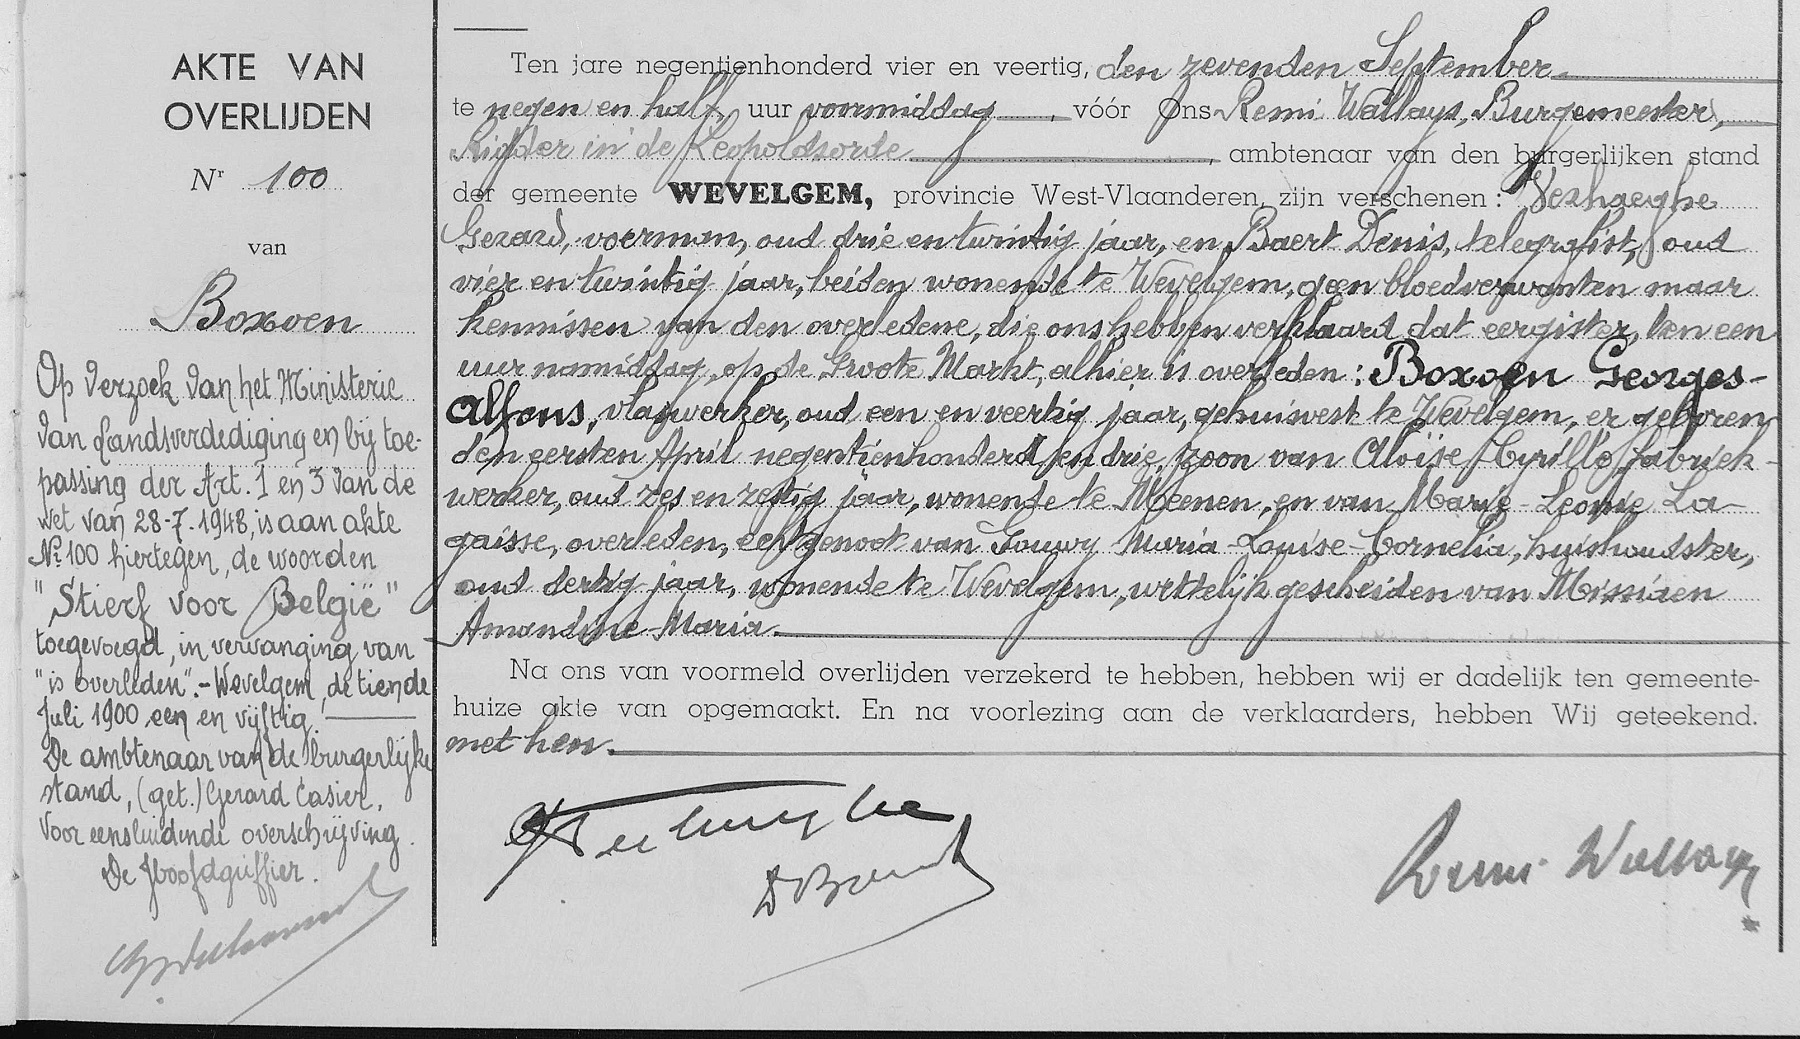 AKTE VAN
OVERLIJDEN
Nr 100
van
Boxoen
Op verzoek van het Ministerie
van Landsverdediging en bij toe-
passing der Art. 1 en 3 van de
wet van 28-7-1948, is aan akte
Nr 100 hiertegen, de woorden
"Stierf voor België"
toegevoegd, in vervanging van
"is overleden".- Wevelgem, de tiende
Juli 1900 een en vijftig.
De ambtenaar van de burgerlijke
stand, (get.) Gerard Casier.
Voor eensluidende overschrijving.
De Hoofdgriffier.
Ten jare negentienhonderd vier en veertig, den zevenden September
te negen en half uur voormiddag, vóór Ons Remi Wallays, Burgemeester,
Ridder in de Leopoldsorde, ambtenaar van den burgerlijken stand
der gemeente WEVELGEM, provincie West-Vlaanderen, zijn verschenen: Verhaeghe
Gerard, voerman, oud drie en twintig jaar, en Baert Denis, telegrafist, oud
vier en twintig jaar, beiden wonende te Wevelgem, geen bloedverwanten maar
kennissen van den overledene, die ons hebben verklaard dat eergister, ten een
uur namiddag, op de Groote Markt, alhier is overleden: Boxoen Georges-
Alfons, vlaswerker, oud een en veertig jaar, gehuisvest te Wevelgem, er geboren
den eersten April negentienhonderd en drie, zoon van Aloïse Cyrille, fabriek-
werker, oud zes en zestig jaar, wonende te Meenen, en van Marie-Leonie La-
gaisse, overleden, echtgenoot van Gouwy Maria-Louise-Cornelia, huishoudster,
oud dertig jaar, wonende te Wevelgem, wettelijk gescheiden van Missiaen
Amandine-Maria.
Na ons van voormeld overlijden verzekerd te hebben, hebben wij er dadelijk ten gemeente-
huize akte van opgemaakt. En na voorlezing aan de verklaarders, hebben Wij geteekend.
met hen.
G Verhaeghe
D Baert
Remi Wallays